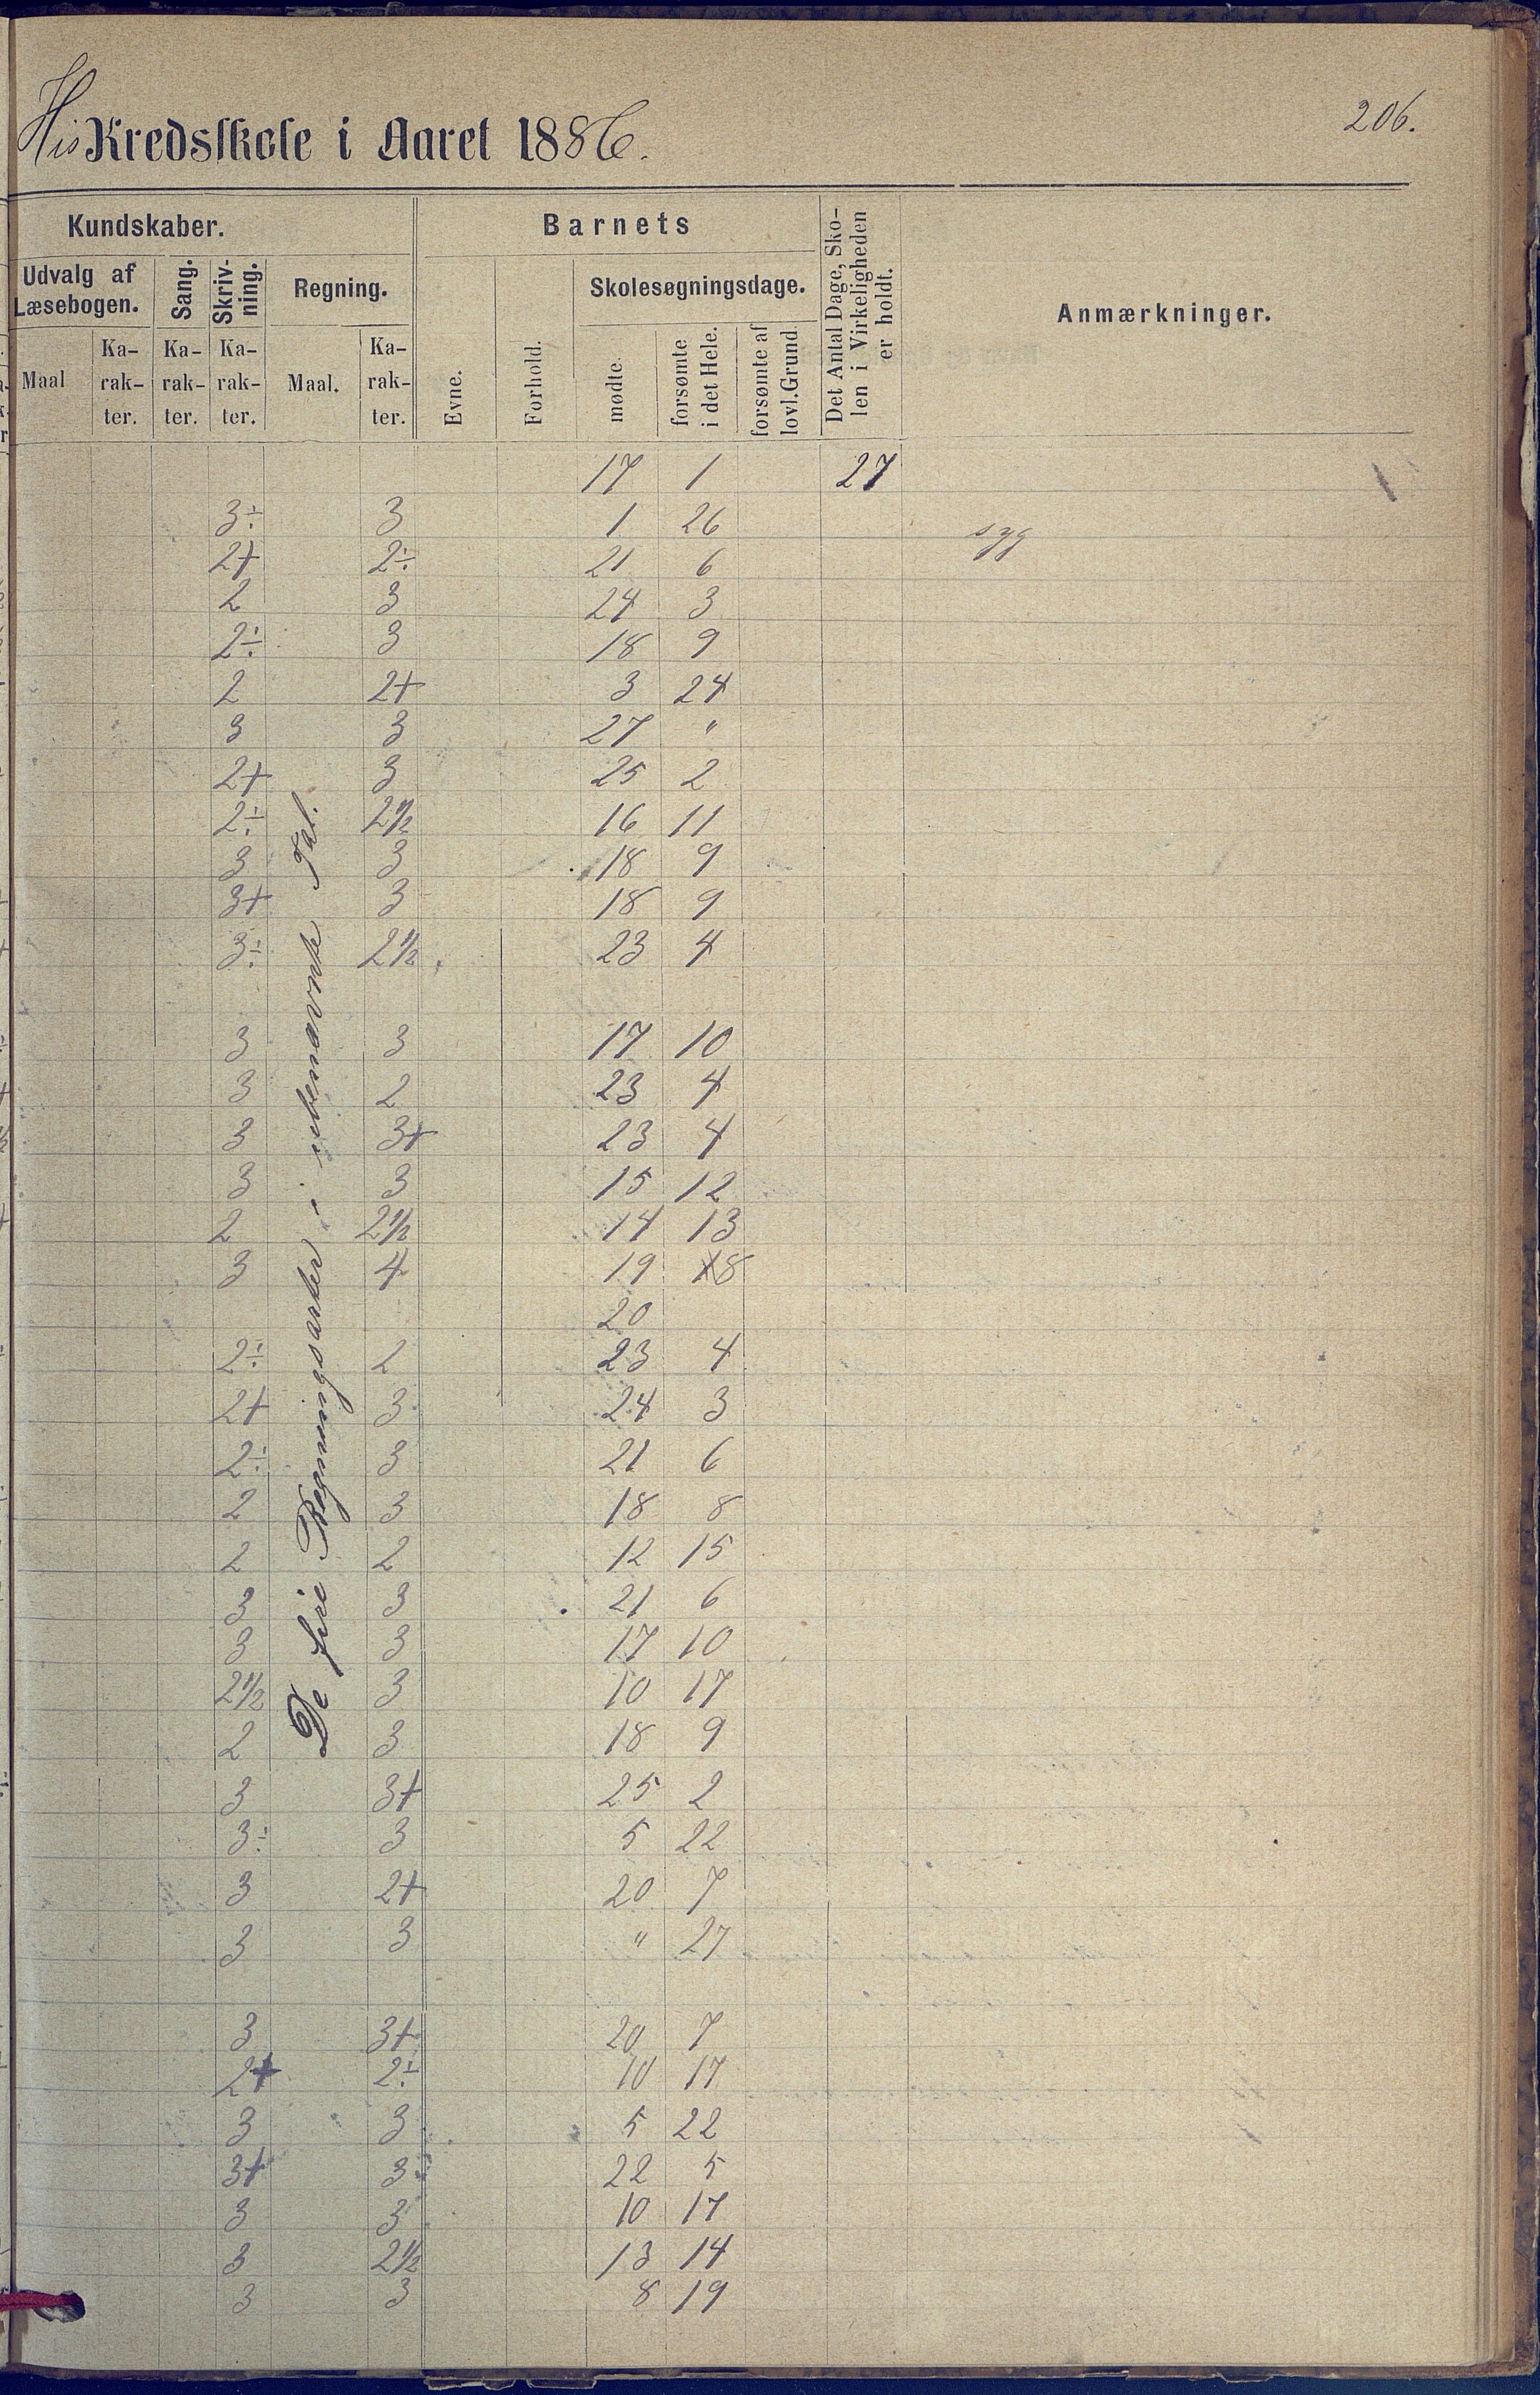 His Kredsskole i Aaret 1886.
206.
Kundskaber.
Barnets
Det Antal Dage, Sko-
len i Virkeligheden
er holdt.
Anmærkninger.
Udvalg af
Læsebogen.
Sang.
Skriv-
ning.
Regning.
Evne.
Forhold.
Skolesøgningsdage.
Maal
Ka-
rak-
ter.
Ka-
rak-
ter.
Ka-
rak-
ter.
Maal.
Ka-
rak-
ter.
mødte.
forsømte
i det Hele.
forsømte af
lovl. Grund.
De fire Regningsarter i ubenævnte Tal.
17 1 27
3÷ 3 1 26 syg
2+ 2÷ 21 6
2 3 24 3
2÷ 3 18 9
2 2+ 3 24
3 3 27 "
2+ 3 25 2
2÷ 2½ 16 11
3 3 18 9
3+ 3 18 9
3÷ 2½ 23 4
3 3 17 10
3 2 23 4
3 3+ 23 4
3 3 15 12
2 2½ 14 13
3 4 19 18
20
2÷ 2 23 4
2+ 3 24 3
2÷ 3 21 6
2 3 18 8
2 2 12 15
3 3 21 6
3 3 17 10
2½ 3 10 17
2 3 18 9
3 3+ 25 2
3÷ 3 5 22
3 2+ 20 7
3 3 " 27
3 3+ 20 7
2+ 2÷ 10 17
3 3 5 22
3+ 3 22 5
3 3 10 17
3 2½ 13 14
3 3 8 19